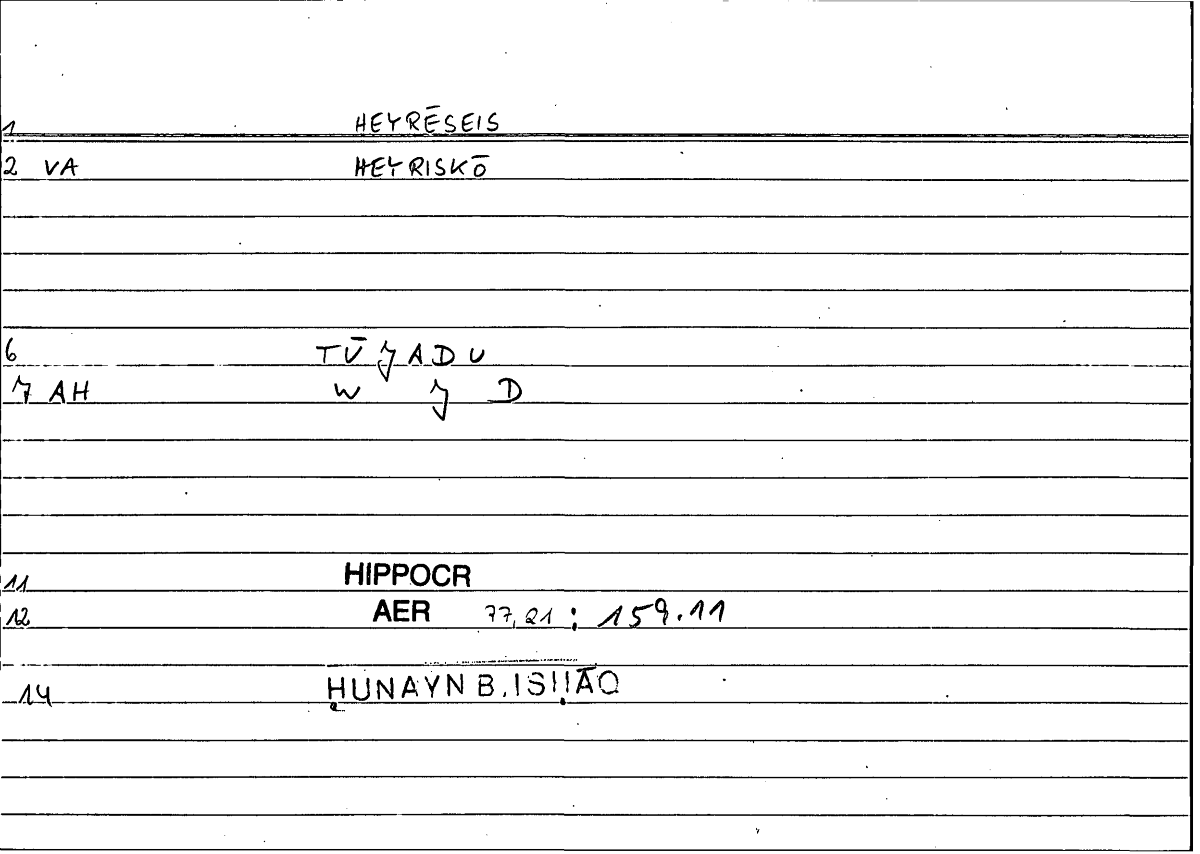 1 HEYRĒSEIS
2 VA HEYRISKŌ
6 TŪǦADU
7 AH W Ǧ D
11 HIPPOCR
12 AER 77,21 : 159.11
14 ḤUNAYN B. ISḤĀQ